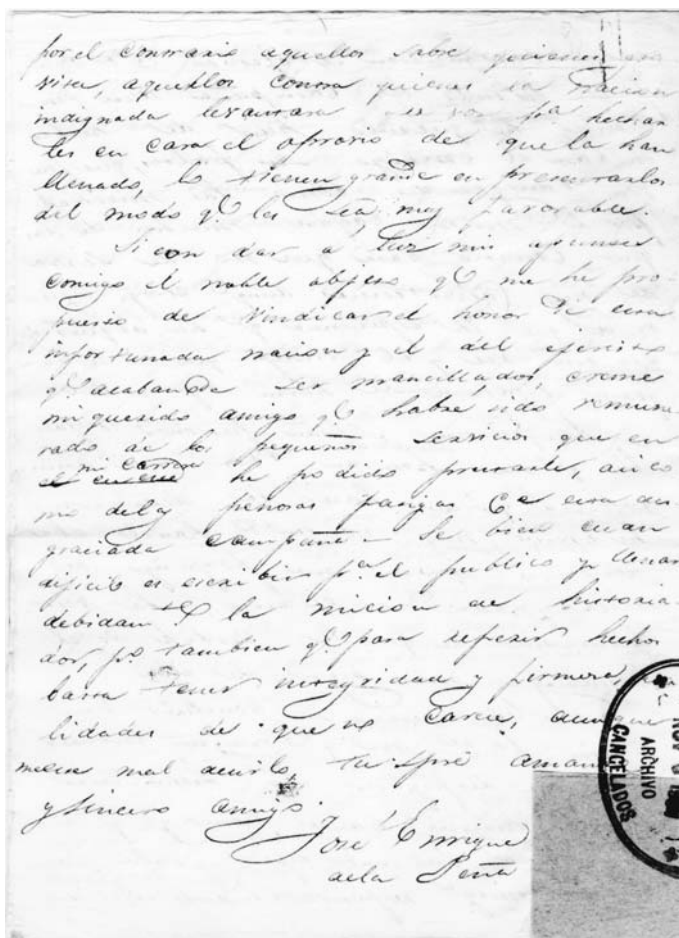 por el contrario aquellos sobre quienes
aquellos contra quienes la nacion
indignada levantara la voz pa. hechar
les en cara el oprovio de que la han
llenado, lo tienen grande en presentarlos
del modo qe. les sea muy favorable.
Si con dar a luz mis apuntes
consigo el noble objeto qe. me he pro-
puesto de vindicar el honor de esta
infortunada nacion y el del ejercito
qe. acaban de ser mancillados, creeme
mi querido amigo qe. habre sido remune
rado de los pequeños servicios que en
mi carrera he podido prestarle, asi co
mo de las penosas fatigas de esta des
graciada campaña - Se bien cuan
dificil es escribir pa. el publico y llenar
debidamte. la micion de historia-
dor, po. tambien qe. para referir hechos
basta tener integridad y firmeza,
lidades de que no carece, aunque
mal decirlo, tu spre.
y sincero amigo.
José Enrique
de la Peña
ARCHIVO
CANCELADOS